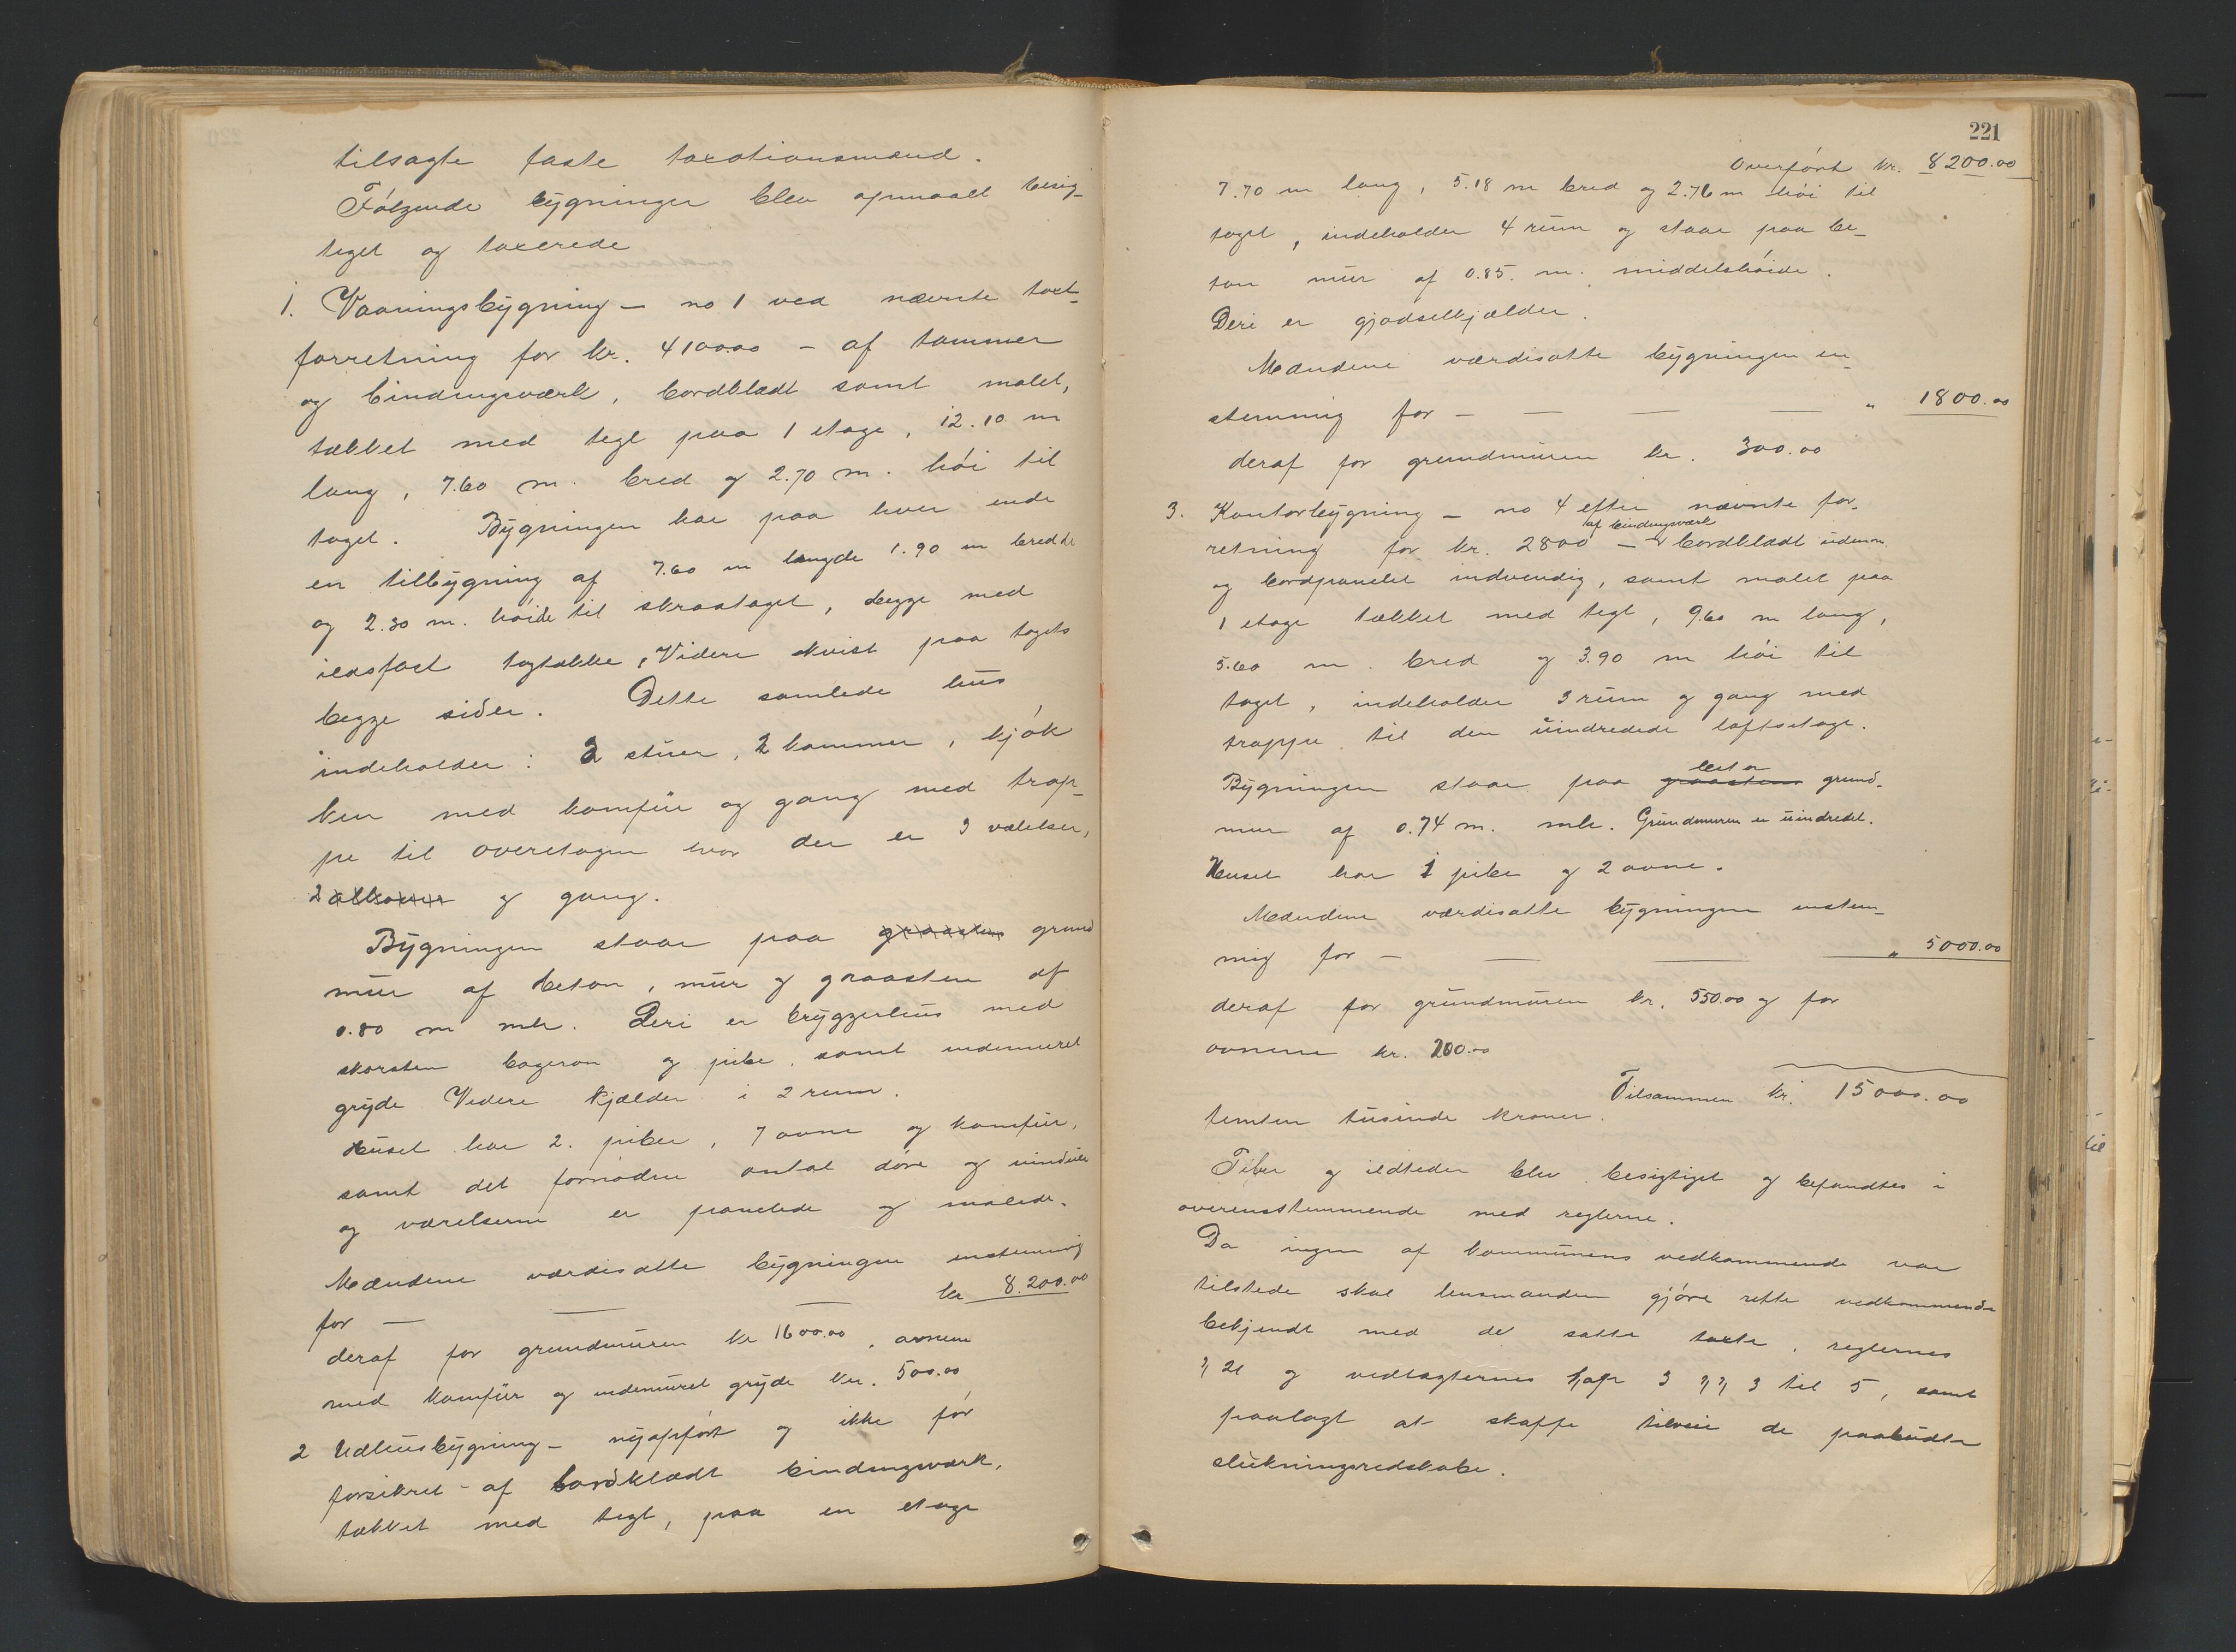 tilsagte faste taxationsmænd.
Følgende bygninger blev opmaalt besig-
teget og taxerede
1. Vaaningsbygning – no 1 ved nævnte taxt-
forretning for kr. 4100.00 – af tømmer
og bindingsværk, bordklædt samt malet,
tækket med tegl paa 1 etage, 12.10 m
lang, 7.60 m. bred og 2.70 m. høi til
taget. Bygningen har paa hver ende
en tilbygning af 7.60 m længde 1.90 m bredde
og 2.30 m. høide til skraataget, begge med
ildsfast tagtække, Videre kvist paa tagets
begge sider. Dette samlede hus
indeholder: 2 stuer, 2 kammer, kjøk
ken med komfur og gang med trap-
pe til overetagen hvor der er 3 værelser,
2 alkover og gang.
Bygningen staar paa graastens grund
mur af beton, mur og graasten af
0.80 m mh. Deri er bryggerhus med
skorsten bageron og pibe, samt indemuret
gryde Videre kjælder i 2 rum.
Huset har 2. piber, 7 ovne og komfur,
samt det fornødne antal døre og vinduer
og værelserne er panelede og malede.
Mændene værdisatte bygningen enstemmig
for – — — kr 8.200.00
deraf for grundmuren kr 1600.00, ovnene
med komfur og indemuret gryde kr. 500.00
2 Udhusbygning – nyopført og ikke før
forsikret – af bordklædt bindingsværk,
tækket med tegl, paa en etage
221
Overført kr. 8200.00
7.70 m lang, 5.18 m bred og 2.76 m høi til
taget, indeholder 4 rum og staar paa be-
ton mur af 0.85. m. middelshøide.
Deri er gjødselkjælder.
Mændene værdisatte bygningen en-
stemmig for – — — — " 1800.00
deraf for grundmuren kr. 300.00
3. Kontorbygning – no 4 efter nævnte for-
af bindingsværk
retning for kr. 2800 – bordklædt udven.
og bordpanelet indvendig, samt malet paa
1 etage tækket med tegl, 9.60 m lang,
5.60 m. bred og 3.90 m høi til
taget, indeholder 3 rum og gang med
trappe til den uindredede loftsetage.
beton
Bygningen staar paa graastens grund-
mur af 0.74 m. mh. Grundmuren er uindredet.
Huset har 1 pibe og 2 ovne.
Mændene værdisatte bygningen enstem-
mig for – — — — " 5000.00
deraf for grundmuren kr. 550.00 og for
ovnene kr. 200.00
Tilsammen kr. 15000.00
femten tusinde kroner.
Piber og ildsteder blev besigtiget og befandtes i
overensstemmende med reglerne.
Da ingen af kommunens vedkommende var
tilstede skal lensmanden gjøre rette vedkommende
bekjendt med de satte taxte, reglernes
§ 21 og vedtægternes kap 3 §§ 3 til 5, samt
paalagt at skaffe tilveie de paabudte
slukningsredskaber.